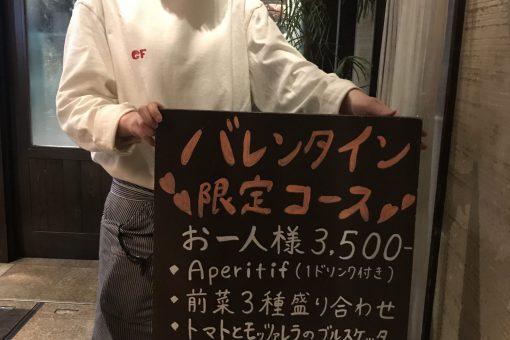 CF
バレンタイン
限定コース
お一人様 3,500-
・Aperitif (1ドリンク付き)
・前菜3種盛り合わせ
・トマトとモッツァレラのブルスケッタ